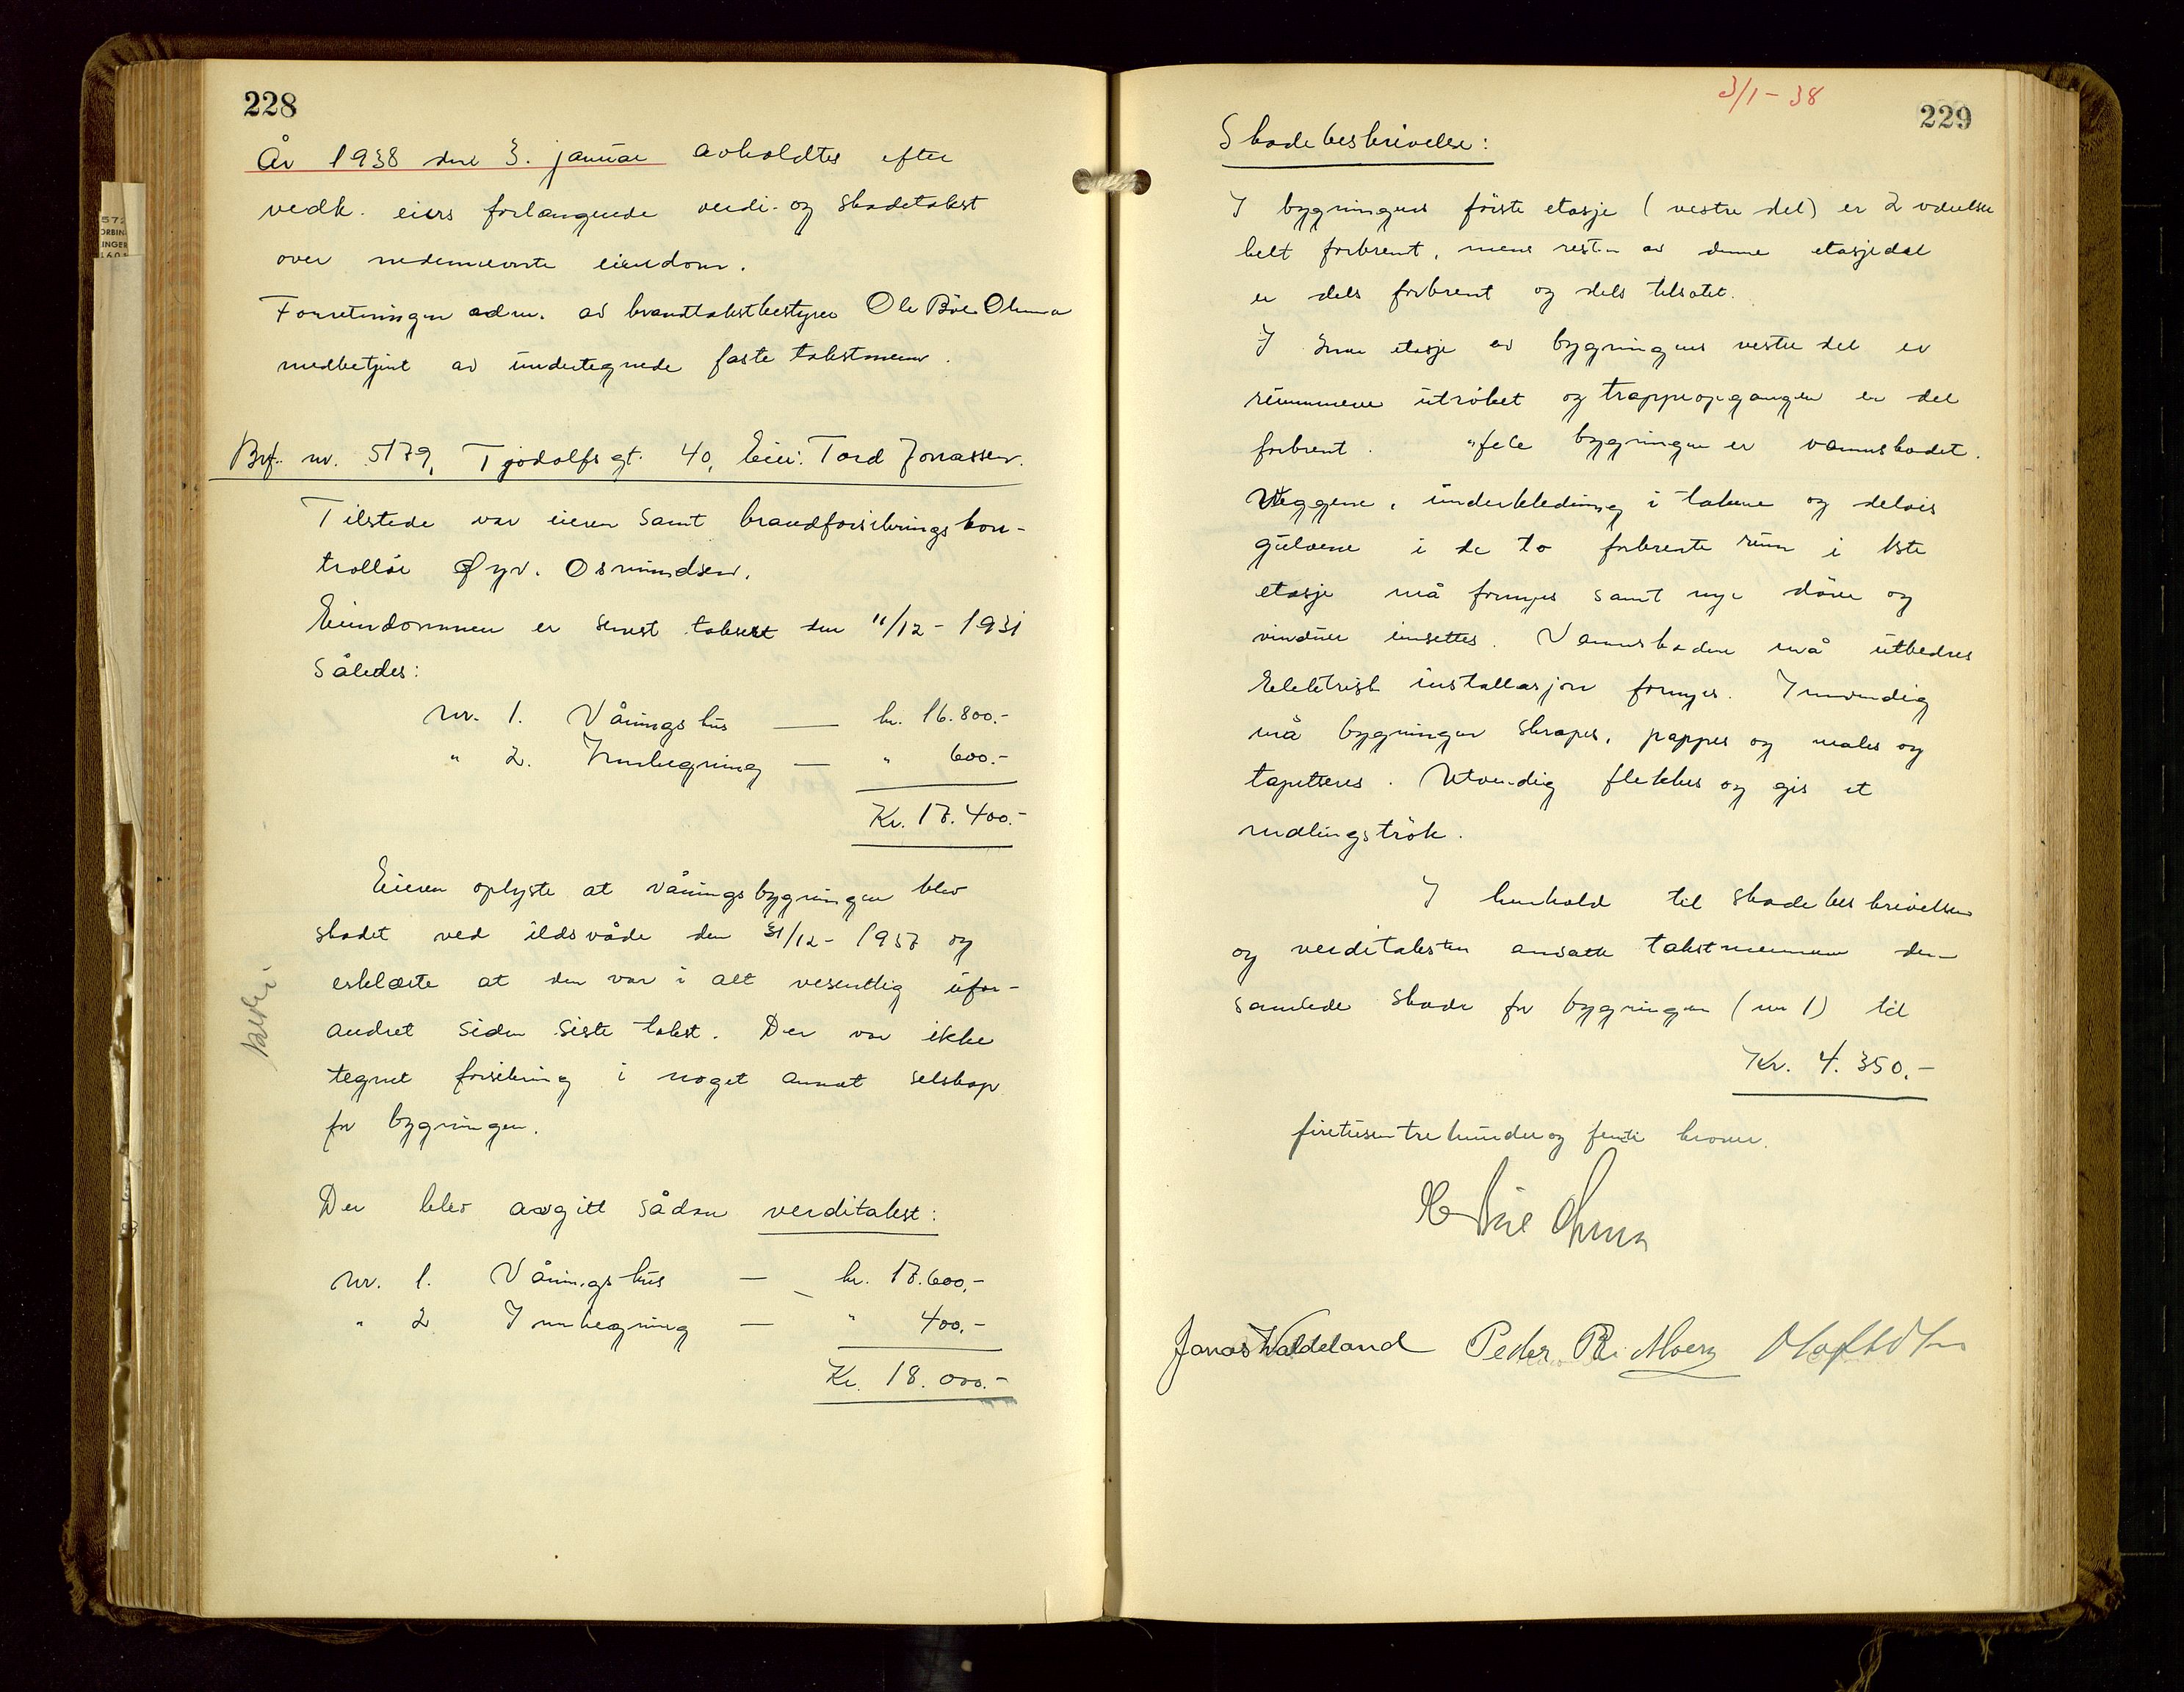 228
År 1938 den 3. januar avholdtes efter
vedk. eiers forlangende verdi- og skadetakst
over nedennevnte eiendom.
Forretningen adm. av brandtakstbestyrer Ole Bøe Olsen
medbetjent av undertegnede faste takstmenn.
Brf. nr. 5179, Tjodolfsgt. 40, Eier: Tord Jonassen.
Tilstede var eieren samt brandforsikringskon-
trollør Øyv. Osmundsen.
Eiendommen er senest taksert den 11/12 - 1931
således:
Nr. 1. Våningshus — kr. 16.800.-
" 2. Innhegning — " 600.-
Kr. 17.400.-
Eieren oplyste at våningsbygningen blev
skadet ved ildsvåde den 31/12 - 1937 og
erklærte at den var i alt vesentlig ufor-
andret siden siste takst. Der var ikke
tegnet forsikring i noget annet selskap
for bygningen.
Der blev avgitt sådan verditakst:
Nr. 1. Våningshus — kr. 17.600,-
" 2 Innhegning — " 400,-
Kr. 18.000.-
3/1 - 38
229
Skadebeskrivelse:
I bygningens første etasje (vestre del) er 2 værelse
helt forbrent, mens resten av denne etasjedel
er dels forbrent og dels tilsotet.
I 2nen etasje av bygningens vestre del er
rummene utrøket og trappeopgangen er del
forbrent. Hele bygningen er vannskadet.
Veggene, underkledning i takene og delvis
gulvene i de to forbrente rum i 1ste
etasje må fornyes samt nye dører og
vinduer innsettes. Vannskadene må utbedres
Elektrisk installasjon fornyes. Innvendig
må bygningen skrapes, pappes og males og
tapetseres. Utvendig flekkes og gis et
malingstrøk.
I henhold til skadebeskrivelsen
og verditaksten ansatte takstmennene den
samlede skade for bygningen (nr 1) til
Kr. 4.350.-
firetusentrehunderog femti kroner.
Jonas Waldeland Peder R.